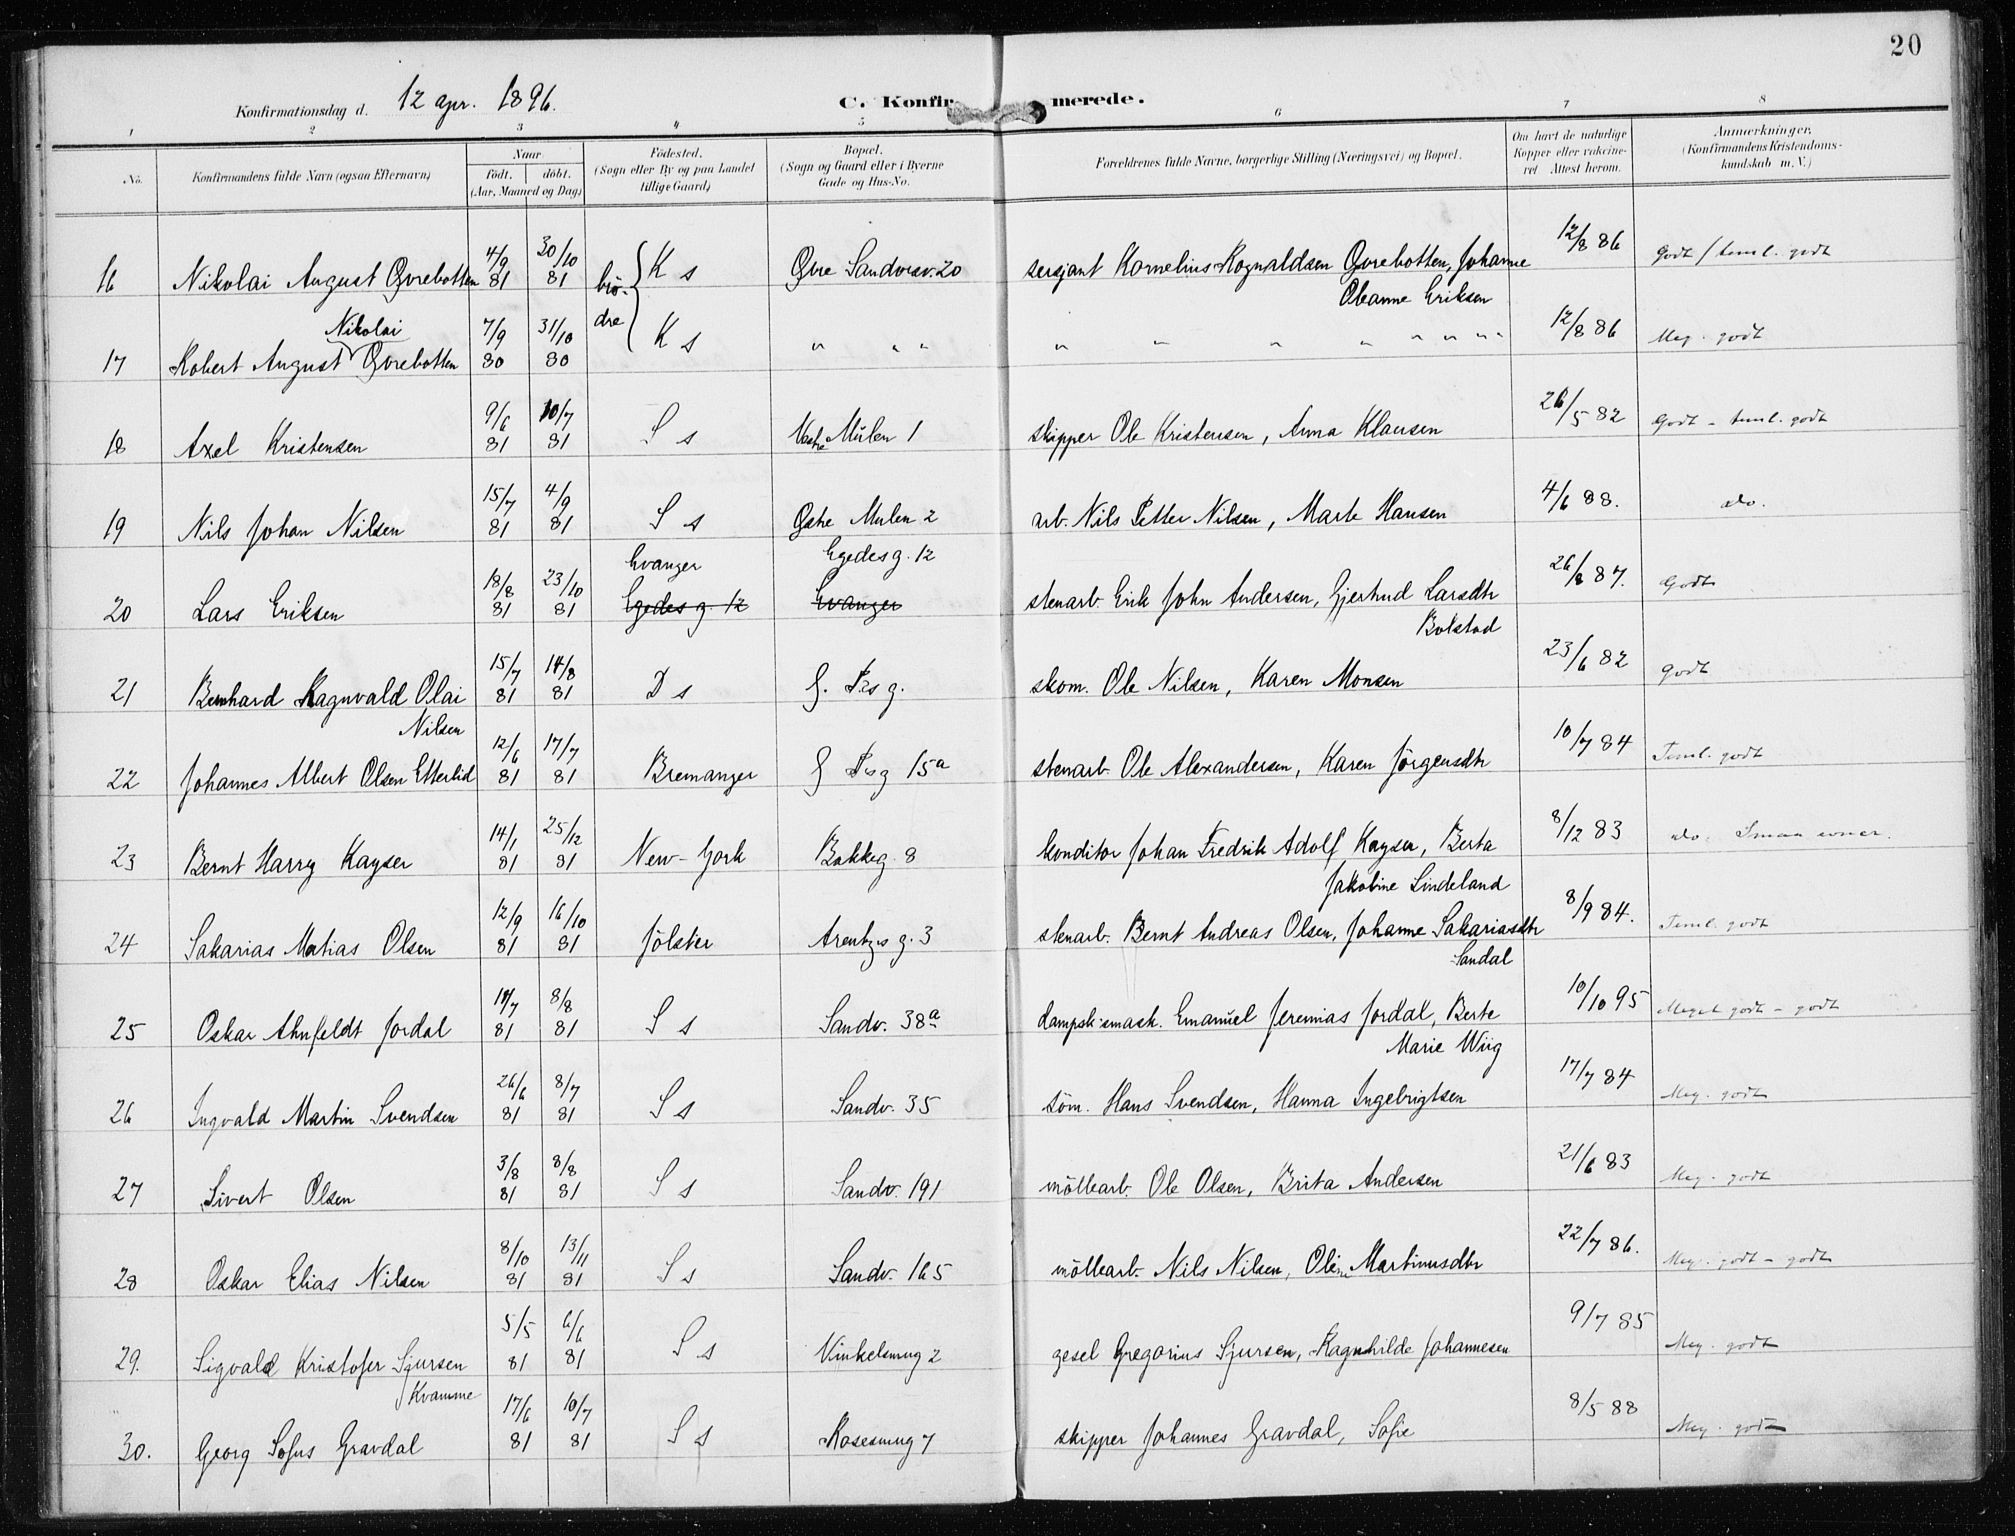 20
Konfirmationsdag d. 12 apr. 1896.
C. Konfirmerede.
1 2 3 4 5 6 7 8
No. Konfirmandens fulde Navn (ogsaa Efternavn) Naar født. døbt. (Aar, Maaned og Dag) Fødested. (Sogn eller By og paa Landet tillige Gaard) Bopæl. (Sogn og Gaard eller i Byerne Gade og Hus-No. Forældrenes fulde Navne, borgerlige Stilling (Næringsvei) og Bopæl. Om havt de naturlige Kopper eller vakcineret Attest herom. Anmærkninger, (Konfirmandens Kristendomskundskab m. V.)
16 Nikolai August Øvrebotten 4/9 81 30/10 81 brødre K s Øvre Sandvesv. 20 sersjant Kornelius Rognaldsen Øvrebotten, Johanne Oleanne Eriksen 12/8 86 Godt / teml. godt
17 Robert August Nikolai Øvrebotten 7/9 80 31/10 80 K s " " " " " " " " " " 12/8 86 Meg. godt
18 Axel Kristensen 9/6 81 10/7 81 S s Vestre Mulen 1 skipper Ole Kristensen, Anna Klausen 26/5 82 Godt - teml. godt
19 Nils Johan Nilsen 15/7 81 4/9 81 S s Østre Mulen 2 arb. Nils Petter Nilsen, Marte Hansen 4/6 88. do.
20 Lars Eriksen 18/8 81 23/10 81 Evanger Egedes g. 12 Egedes g. 12 Evanger stenarb. Erik John Andersen, Gjertrud Larsdtr Bolstad 26/8 87. Godt
21 Bernhard Ragnvald Olai Nilsen 15/7 81 14/8 81 D s g. skom. Ole Nilsen, Karen Monsen 23/6 82 Godt
22 Johannes Albert Olsen Etterlid 12/6 81 17/7 81 Bremanger g 15a stenarb. Ole Alexandersen, Karen Jørgensdtr 10/7 84 Teml. godt
23 Bernt Harry Kayser 14/1 81 25/12 81 New-York Bakkeg. 8 konditor Johan Fredrik Adolf Kayser, Berta Jakobine Lindeland 8/12 83 do. Smaa evner.
24 Sakarias Matias Olsen 12/9 81 16/10 81 Jølster Arentzes g. 3 stenarb. Bernt Andreas Olsen, Johanne Sakariasdtr Sandal 8/9 84. Teml. godt
25 Oskar Ahnfeldt Jordal 11/7 81 8/8 81 S s Sandv. 38a dampsk smask. Emanuel Jeremias Jordal, Berte Marie Wiig 10/10 95 Meget godt - godt
26 Ingvald Martin Svendsen 26/6 81 8/7 81 S s Sandv. 35 søm. Hans Svendsen, Hanna Ingebrigtsen 17/7 84 Meg. godt
27 Sivert Olsen 3/8 81 8/8 81 S s Sandv. 191 møllearb. Ole Olsen, Brita Andersen 21/6 83 Meg. godt
28 Oskar Elias Nilsen 8/10 81 13/11 81 S s Sandv. 165 møllearb. Nils Nilsen, Oline Martinusdtr 22/7 86. Meg. godt - godt
29. Sigvald Kristofer Sjursen Kvamme 5/5 81 6/6 81 S s Vinkelsmug 2 gesel Gregorius Sjursen, Ragnhilde Johannesen 9/7 85 Meg. godt
30. Georg Sofus Gravdal 17/6 81 10/7 81 S s Rosesmug 7 skipper Johannes Gravdal, Sofie 8/5 88 Meg. godt